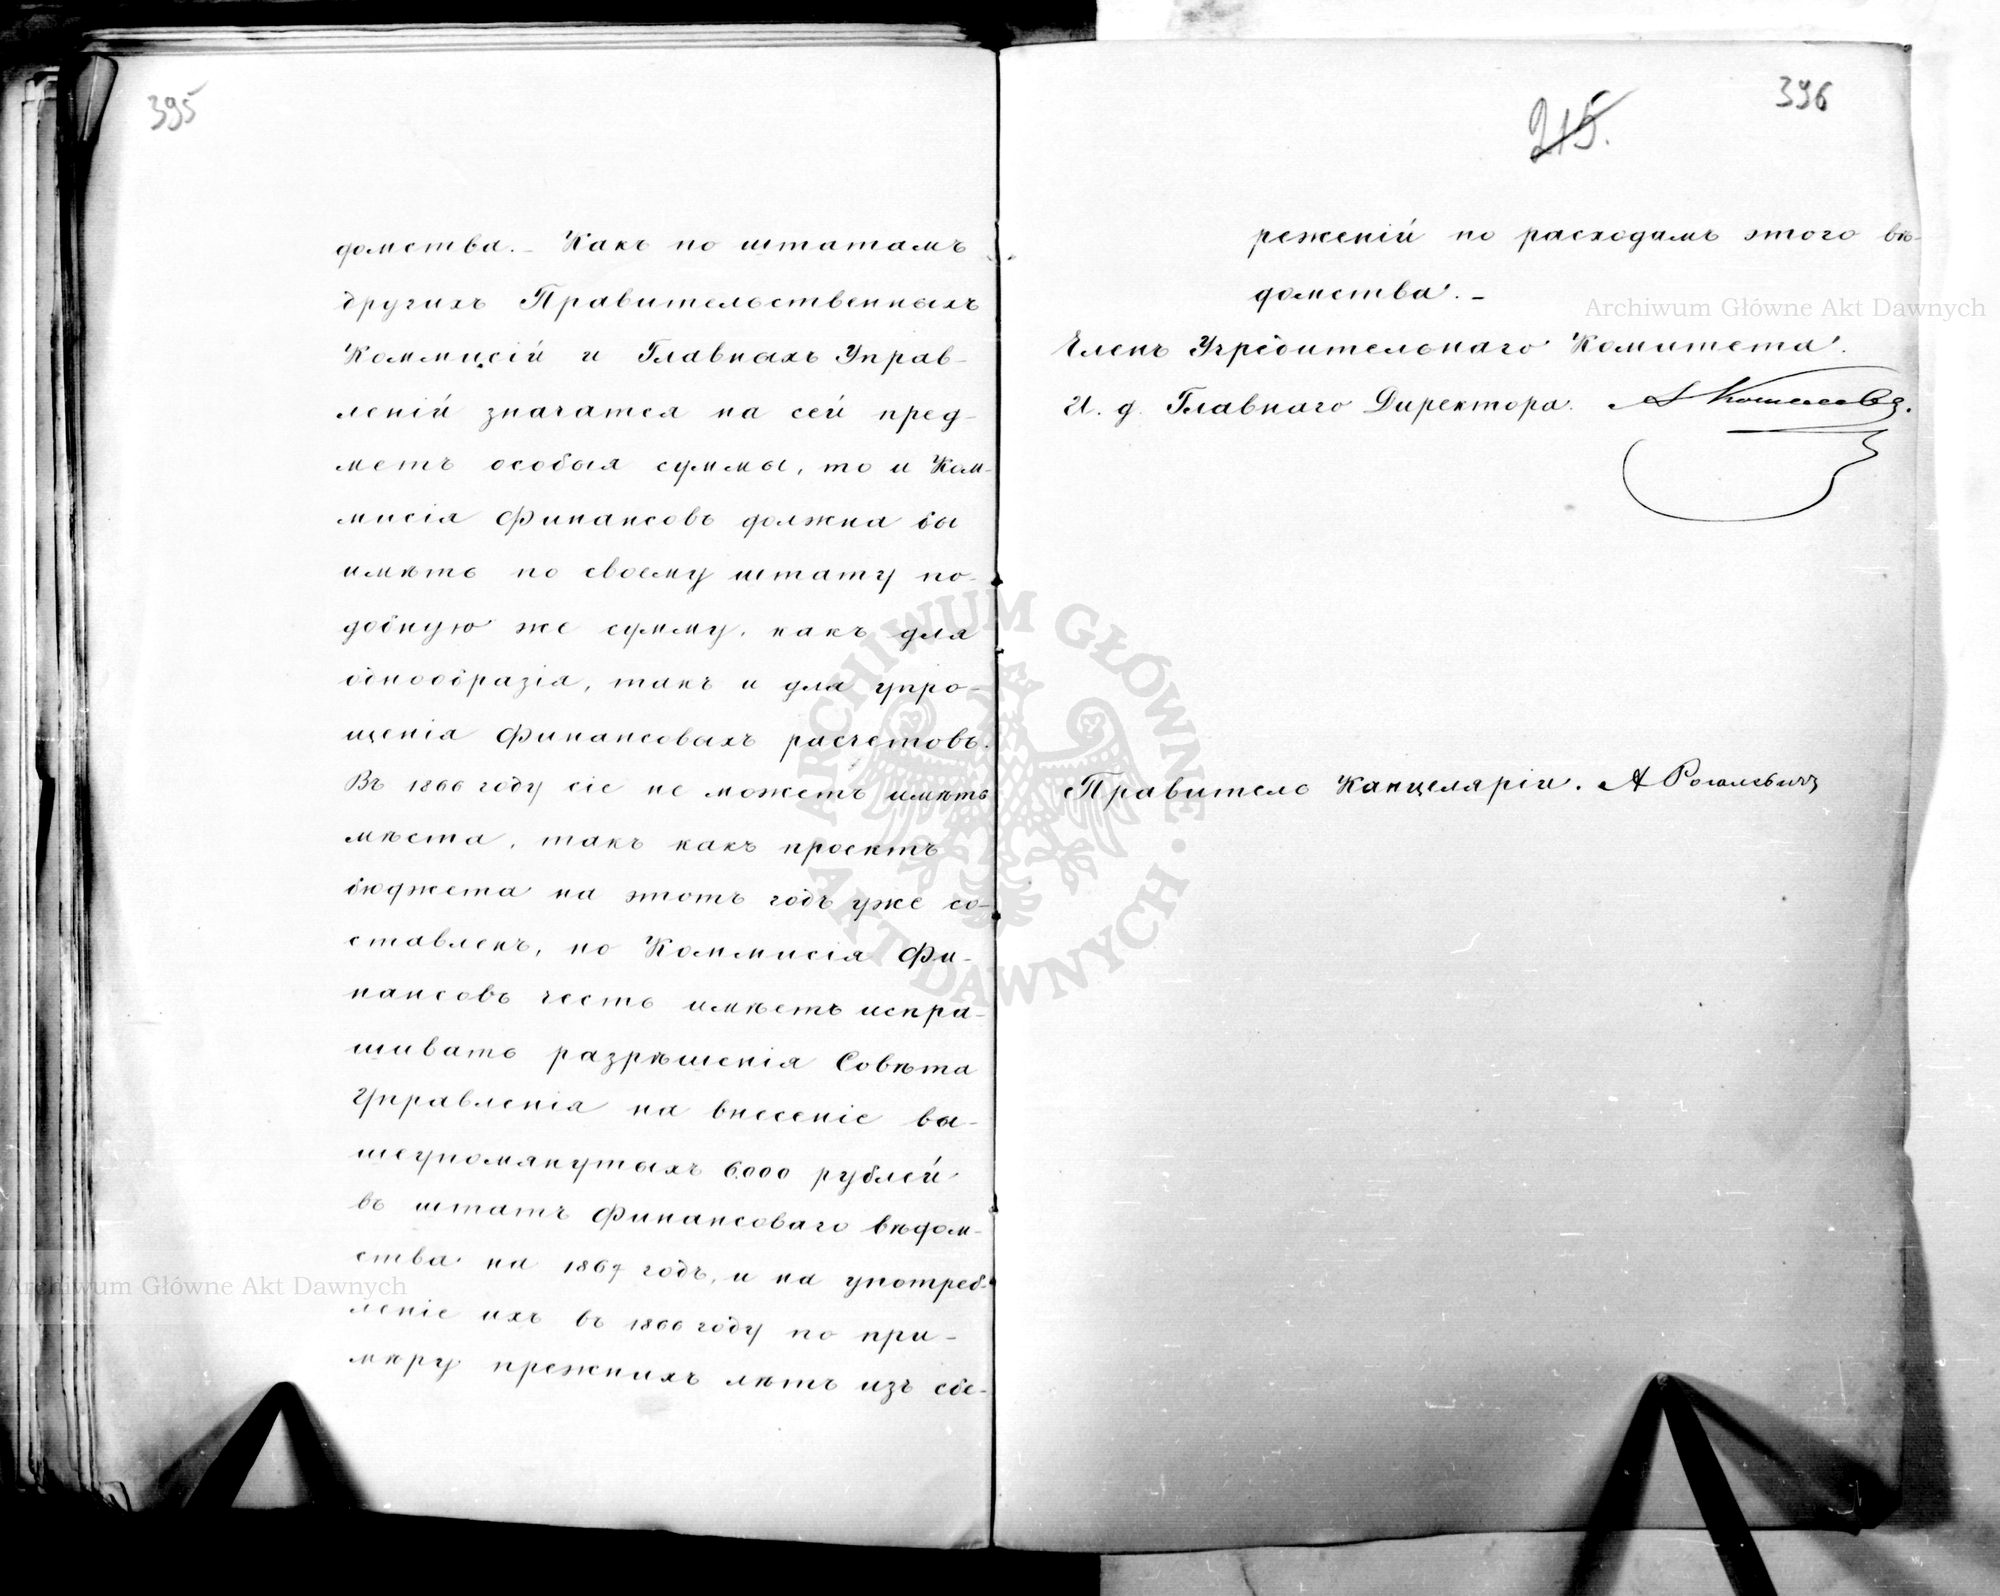 395
домства. – Какъ по штатамъ
другихъ Правительственныхъ
Коммисій и Главныхъ Управ-
леній значатся на сей пред-
метъ особыя суммы, то и Ком-
мисія Финансовъ должна бы
имѣть по своему штату по-
добную же сумму, какъ для
однообразія, такъ и для упро-
щенія финансовыхъ расчетовъ.
Въ 1866 году сіе не можетъ имѣть
мѣста, такъ какъ проектъ
бюджета на этотъ годъ уже со-
ставленъ, но Коммисія Фи-
нансовъ честь имѣетъ испра-
шивать разрѣшенія Совѣта
Управленія на внесеніе вы-
шеупомянутыхъ 6000 рублей
въ штатъ Финансоваго вѣдом-
ства на 1867 годъ, и на употреб-
леніе ихъ въ 1866 году по при-
мѣру прежнихъ лѣтъ изъ сбе-
396
215.
реженій по расходамъ этого вѣ-
домства. –
Членъ Учредительнаго Комитета.
И. д. Главнаго Директора. А Кошелевъ.
Правитель Канцеляріи. А Рогалевичъ
Archiwum Główne Akt Dawnych
Archiwum Główne Akt Dawnych
ARCHIWUM GŁÓWNE · AKT DAWNYCH ·